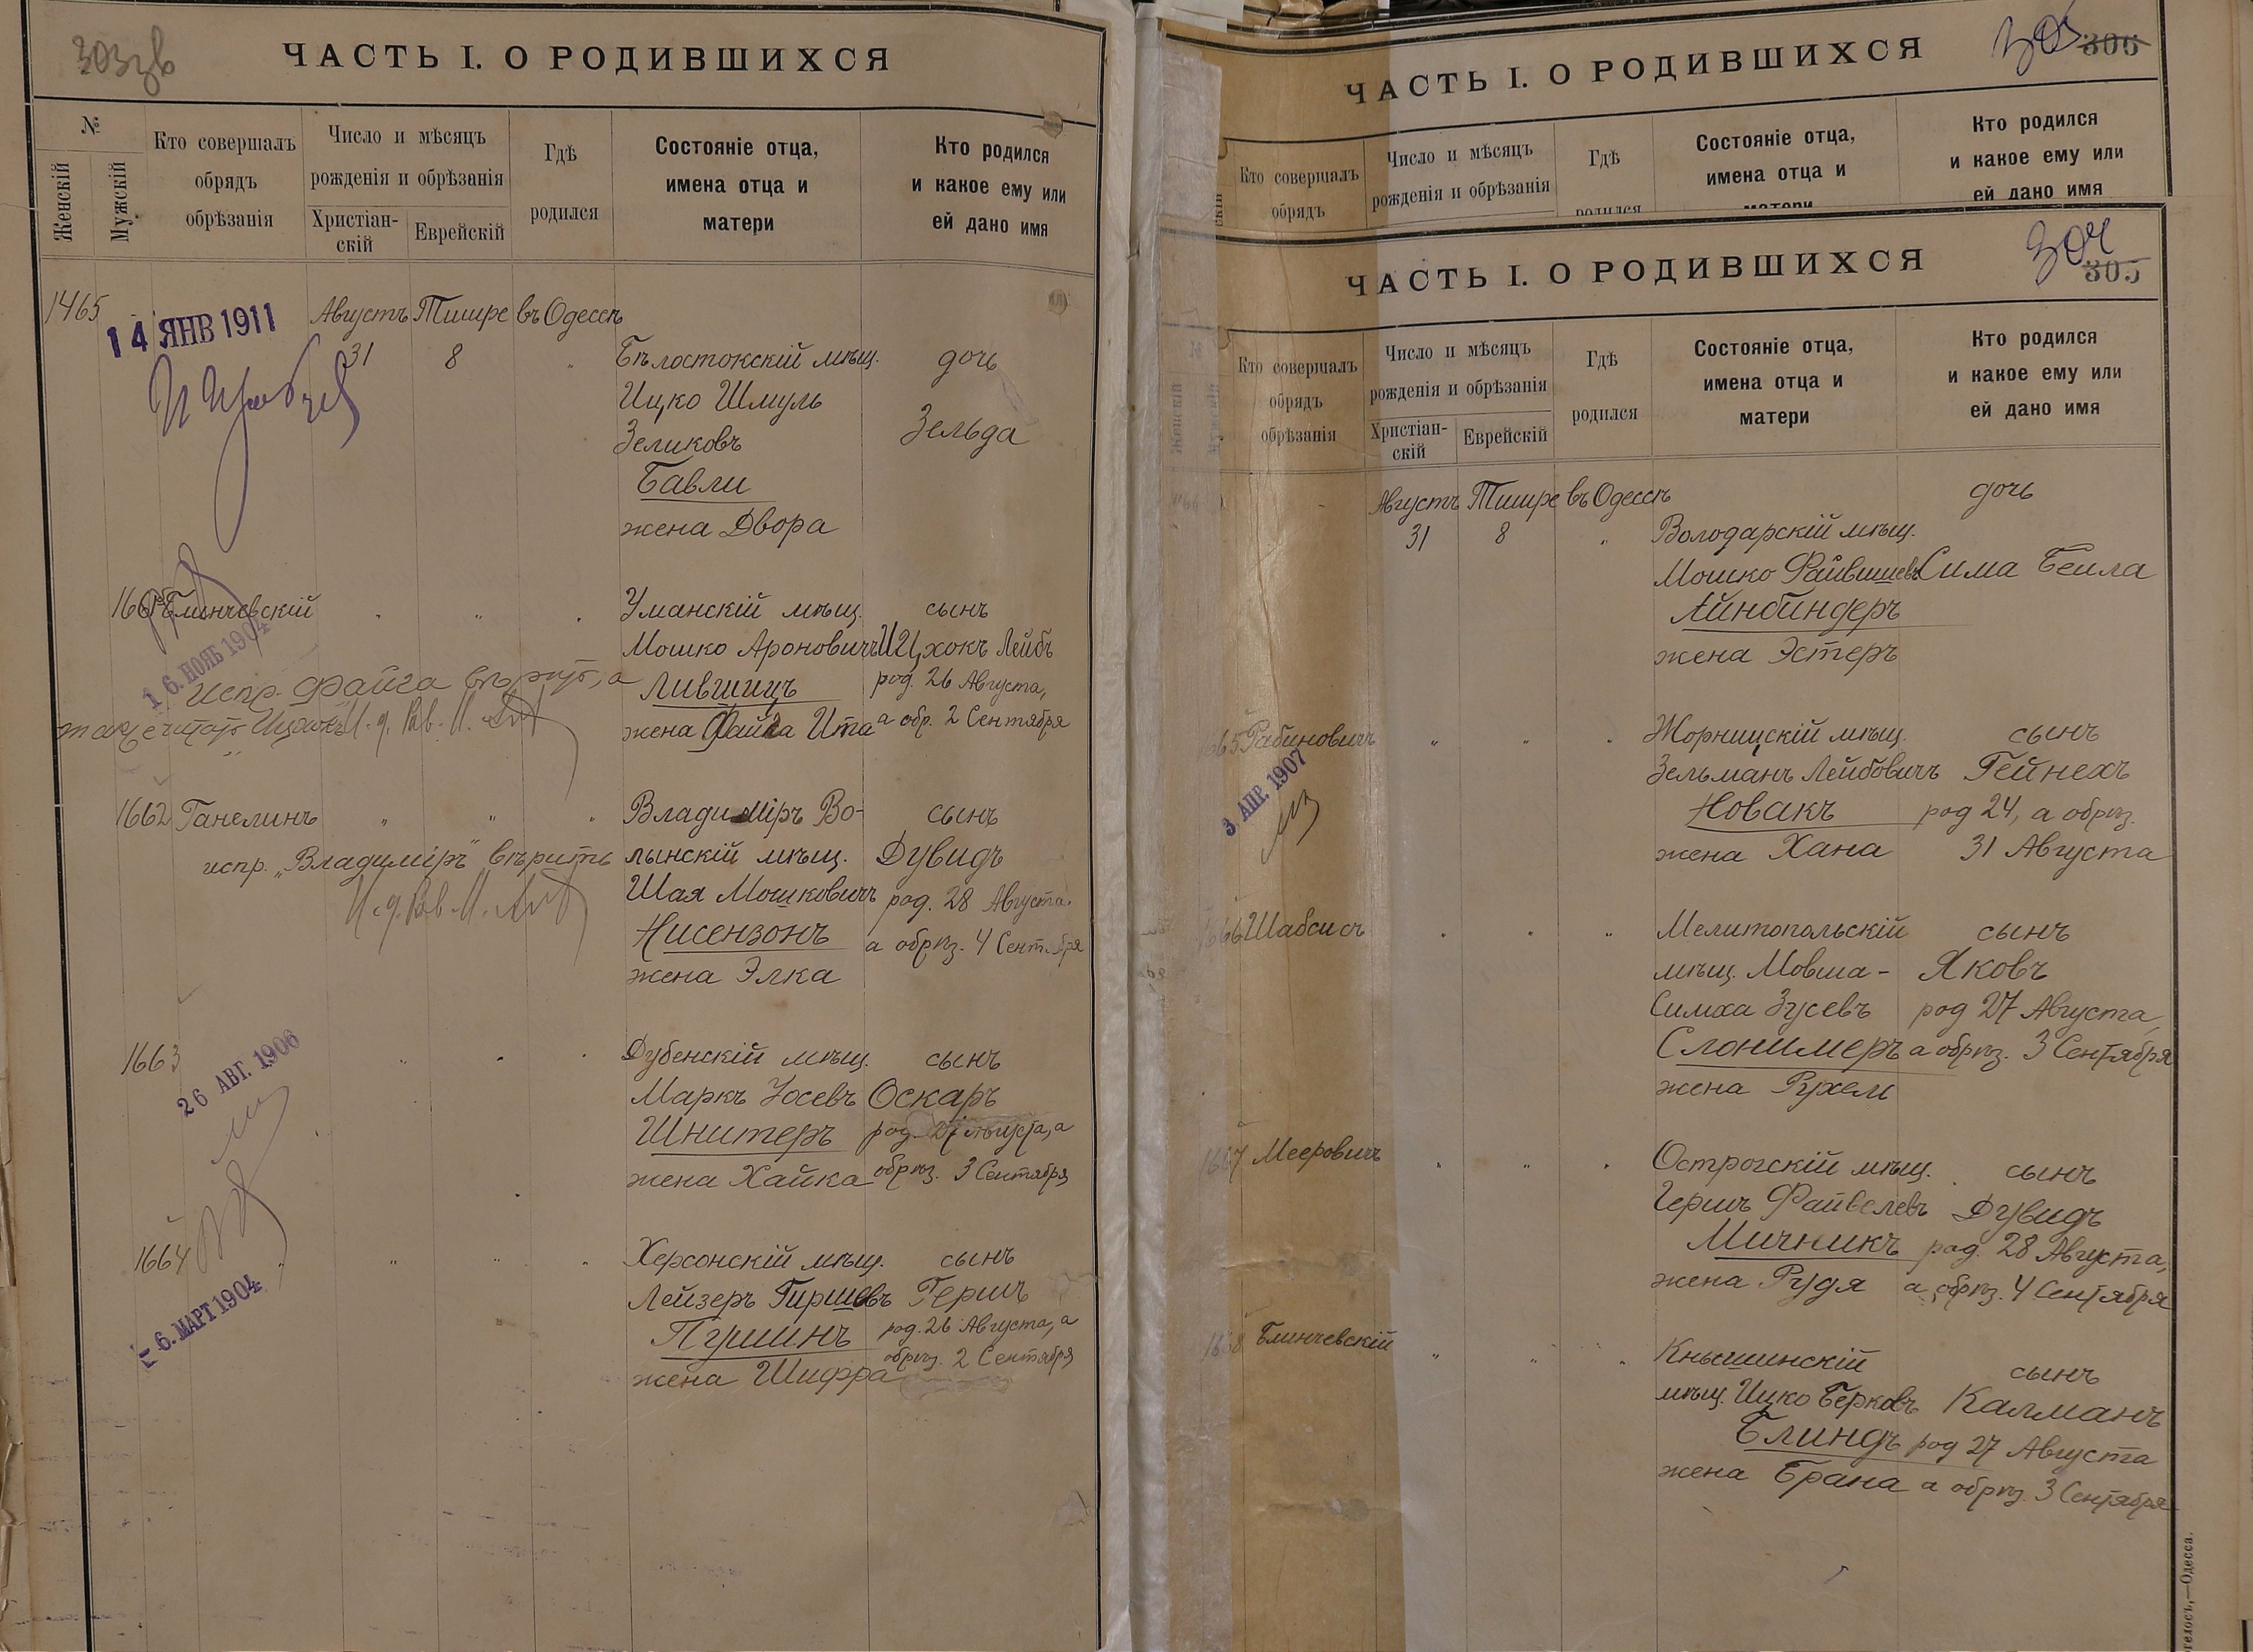 303 зв
ЧАСТЬ I. О РОДИВШИХСЯ
№
Женскій
Мужскій
Кто совершалъ
обрядъ
обрѣзанія
Число и мѣсяцъ
рожденія и обрѣзанія
Христіан-
скій
Еврейскій
Гдѣ
родился
Состояніе отца,
имена отца и
матери
Кто родился
и какое ему или
ей дано имя
1465
14 ЯНВ 1911
Августъ Тишре въ Одессѣ
31 8 "
Бѣлостокскій мѣщ.
Ицко Шмуль
Зеликовъ
Бавли
жена Двора
дочь
Зельда
Блинчевскій
16. НОЯБ 1904
Уманскій мѣщ.
Мошко Ароновичъ
Лившицъ
жена Файга Ита
сынъ
Ицхокъ Лейбъ
род. 26 Августа,
а обр. 2 Сентября
испр. Файга
И. д. Рав.
1662 Ганелинъ " " "
Владиміръ Во-
лынскій мѣщ.
Шая Мошковичъ
Нисензонъ
жена Элка
сынъ
Дувидъ
род. 28 Августа
а обрѣз. 4 Сентября
испр. „Владиміръ" вѣрить
И. д. Рав.
1663
26 АВГ. 1906
Дубенскій мѣщ.
Маркъ Іосевъ
Шнитеръ
жена Хайка
сынъ
Оскаръ
род. 27 Августа, а
обрѣз. 3 Сентября
1664
6. МАРТ 1904
Херсонскій мѣщ.
Лейзеръ Гиршевъ
Пуршинъ
жена Шифра
сынъ
Гершъ
род. 26 Августа, а
обрѣз. 2 Сентября
305
306
ЧАСТЬ I. О РОДИВШИХСЯ
Кто совершалъ
обрядъ
Число и мѣсяцъ
рожденія и обрѣзанія
Гдѣ
родился
Состояніе отца,
имена отца и
матери
Кто родился
и какое ему или
ей дано имя
304
305
ЧАСТЬ I. О РОДИВШИХСЯ
Женскій
Мужскій
Кто совершалъ
обрядъ
обрѣзанія
Число и мѣсяцъ
рожденія и обрѣзанія
Христіан-
скій
Еврейскій
Гдѣ
родился
Состояніе отца,
имена отца и
матери
Кто родился
и какое ему или
ей дано имя
Августъ Тишре въ Одессѣ
31 8 "
Володарскій мѣщ.
Мошко Файвишевъ
Айнбиндеръ
жена Эстеръ
дочь
Сима Бейла
1665 Рабиновичъ " " "
3 АПР. 1907
Жорнищскій мѣщ.
Зельманъ Лейбовичъ
Новакъ
жена Хана
сынъ
Гейнехъ
род 24, а обрѣз.
31 Августа
1666 Шабсисъ " " "
Мелитопольскій
мѣщ. Мовша-
Симха Зусевъ
Слонимеръ
жена Рухель
сынъ
Яковъ
род 27 Августа,
а обрѣз. 3 Сентября
1667 Мееровичъ " " "
Острогскій мѣщ.
Гершъ Файвелевъ
Мичникъ
жена Рудя
сынъ
Дувидъ
род. 28 Августа,
а обрѣз. 4 Сентября
1668 Блинчевскій " " "
Кнышинскій
мѣщ. Ицко Берковъ
Блиндъ
жена Брана
сынъ
Калманъ
род 27 Августа
а обрѣз. 3 Сентября
Одесса.